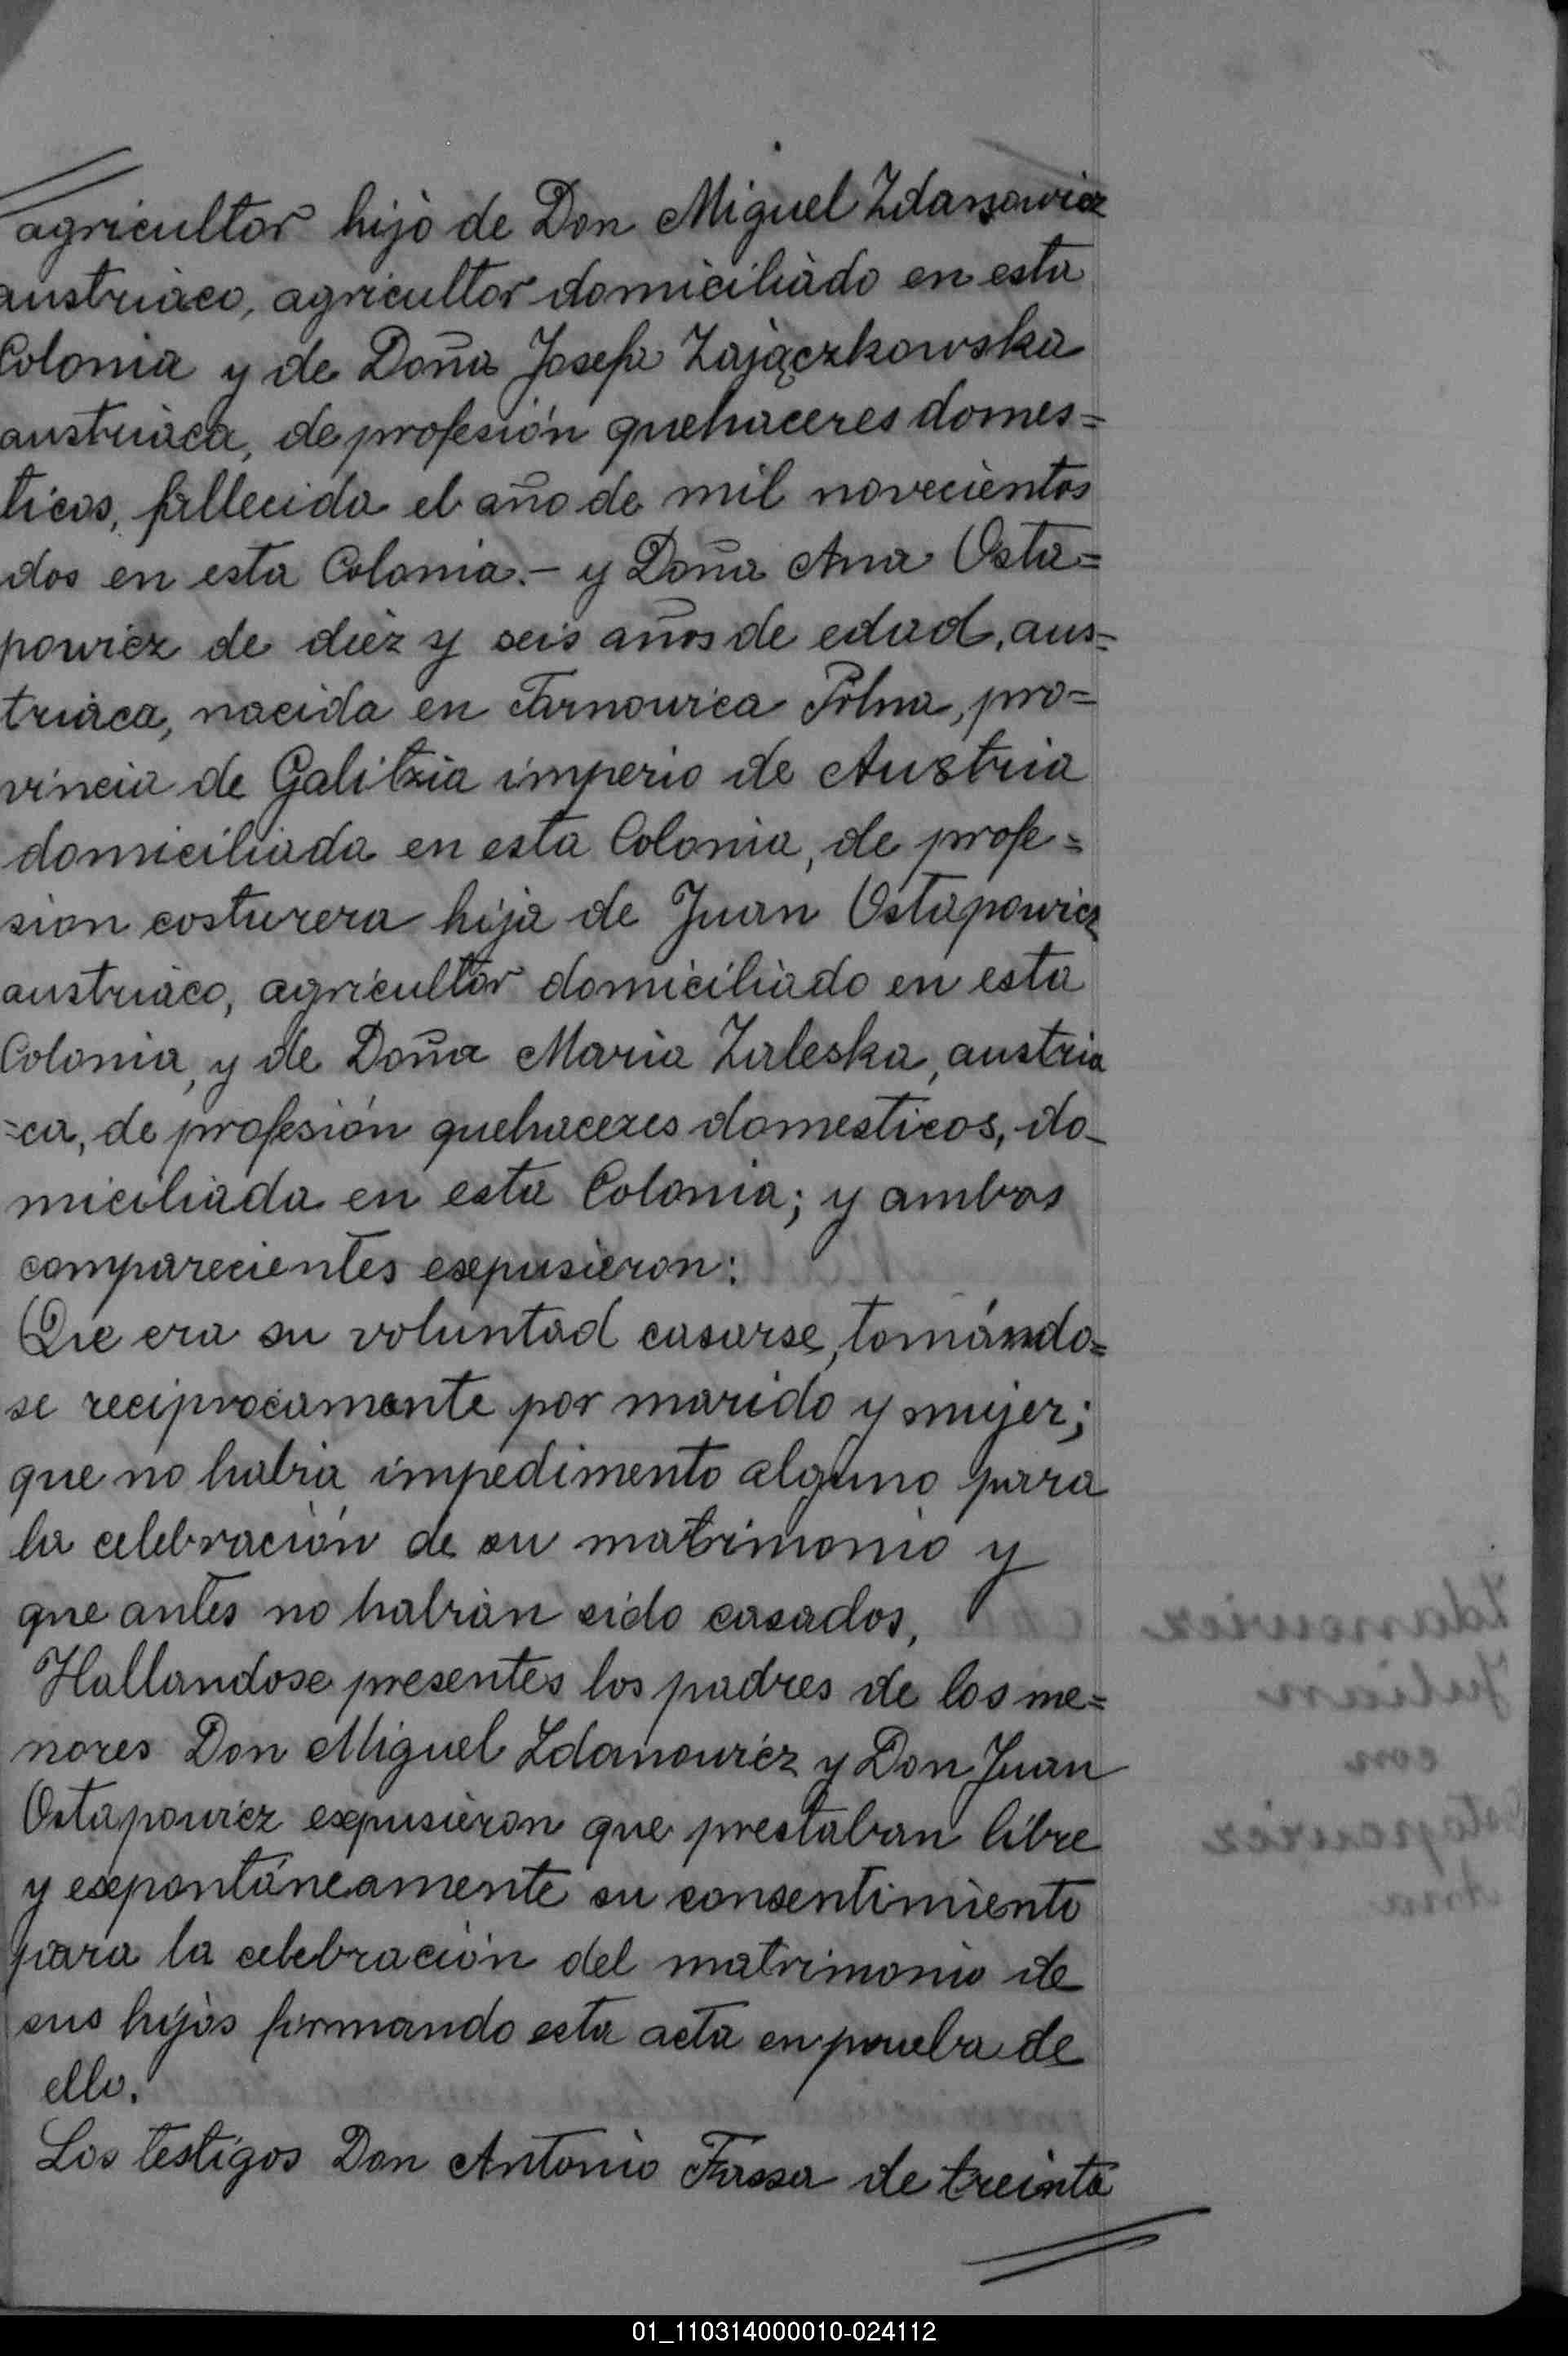 agricultor hijo de Don Miguel Zdanowicz
austriaco, agricultor domiciliado en esta
Colonia y de Doña Josefa Zajączkowska
austriaca, de profesión quehaceres domes=
ticos, fallecida el año de mil novecientos
dos en esta Colonia.- y Doña Ana Osta=
powicz de diez y seis años de edad, aus=
triaca, nacida en Tarnowica Polna, pro=
vincia de Galitzia imperio de Austria
domiciliada en esta Colonia, de profe=
sion costurera hija de Juan Ostapowicz
austriaco, agricultor domiciliado en esta
Colonia, y de Doña Maria Zaleska, austria
=ca, de profesión quehaceres domesticos, do-
miciliada en esta Colonia; y ambos
comparecientes expusieron:
Que era su voluntad casarse, tomándo=
se reciprocamente por marido y mujer;
que no habia impedimento alguno para
la celebración de su matrimonio y
que antes no habian sido casados,
Hallandose presentes los padres de los me=
nores Don Miguel Zdanowicz y Don Juan
Ostapowicz expusieron que prestaban libre
y expontáneamente su consentimiento
para la celebración del matrimonio de
sus hijos firmando esta acta en prueba de
ello.
Los testigos Don Antonio Fassa de treinta
Zdanowicz
Julian
con
Ostapowicz
Ana
01_110314000010-024112